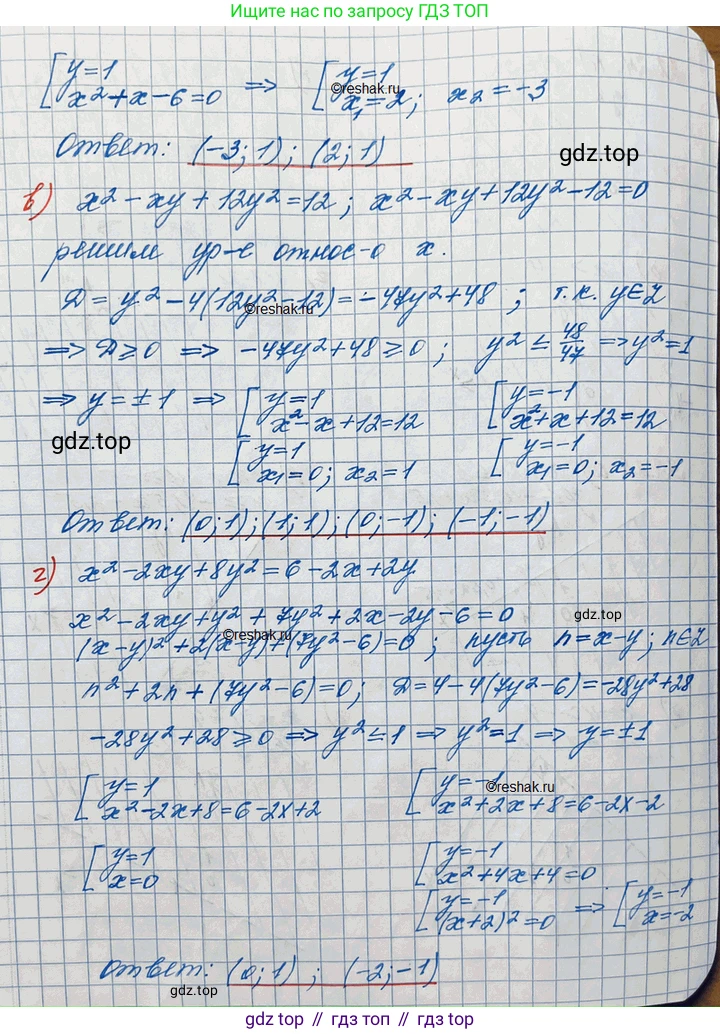 Ищите нас по запросу ГДЗ ТОП
[y=1
x²+x-6=0 ⇒ [y=1
x₁=2; x₂=-3
©reshak.ru
Ответ: (-3;1); (2;1)
gdz.top
в) x²-xy+12y²=12; x²-xy+12y²-12=0
решим ур-е относ-о x.
Д=y²-4(12y²-12)=-47y²+48; т.к. y∈Z
©reshak.ru
⇒ Д≥0 ⇒ -47y²+48≥0; y²≤48/47 ⇒y²=1
⇒ y=±1 ⇒ [y=1
x²-x+12=12 [y=-1
x²+x+12=12
gdz.top
[y=1
x₁=0; x₂=1 [y=-1
x₁=0; x₂=-1
Ответ: (0;1);(1;1);(0;-1);(-1;-1)
г) x²-2xy+8y²=6-2x+2y
x²-2xy+y²+7y²+2x-2y-6=0
gdz.top
(x-y)²+2(x-y)+(7y²-6)=0; пусть n=x-y; n∈Z
©reshak.ru
n²+2n+(7y²-6)=0; Д=4-4(7y²-6)=-28y²+28
-28y²+28≥0 ⇒ y²≤1 ⇒ y²=1 ⇒ y=±1
[y=1
x²-2x+8=6-2x+2 [y=-1
x²+2x+8=6-2x-2
©reshak.ru
[y=1
x=0 [y=-1
x²+4x+4=0
[y=-1
(x+2)²=0 ⇒ [y=-1
x=-2
Ответ: (0;1); (-2;-1)
gdz.top
gdz top // gdz.top // gdz.top